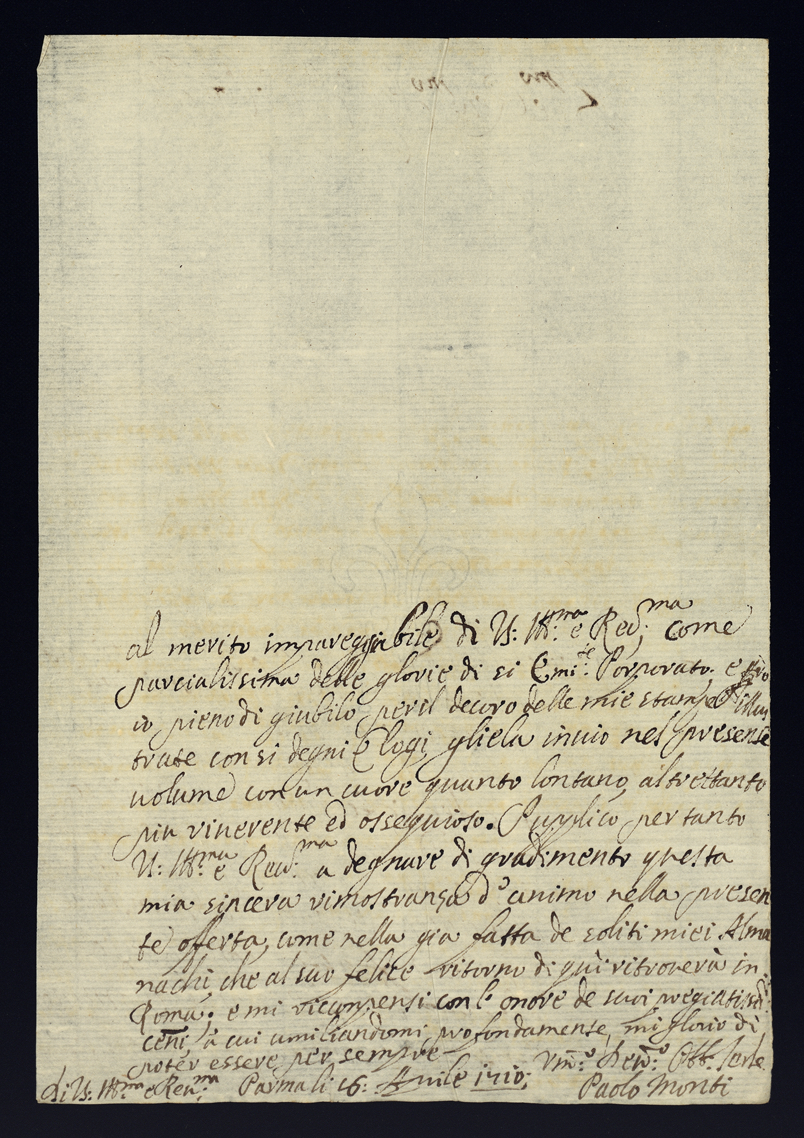 al merito impareggiabile di V: Ill:ma e Rev:ma come
parcialissima delle glorie di si Emi:te Porporato, e
io pieno di giubilo per il decoro delle mie stampe illus
trate con si degni Elogi, gliela invio nel presente
volume con un cuore quanto lontano, altrettanto
piu riverente ed ossequioso. Supplico per tanto
V: Ill:ma e Rev:ma a degnare di gradimento questa
mia sincera rimostranza d'animo nella presen
te offerta, come nella gia fatta de soliti miei Alma
nachi, che al suo felice ritorno di qui ritroverà in
Roma: e mi ricompensi con l'onore de suoi pregiatis:
cenni, à cui umiliandomi profondamente, mi glorio di
poter essere per sempre
di V: Ill:ma e Rev:ma Parma li 16: Aprile 1710: Um:o Dev:o Obb: Serv:e
Paolo Monti